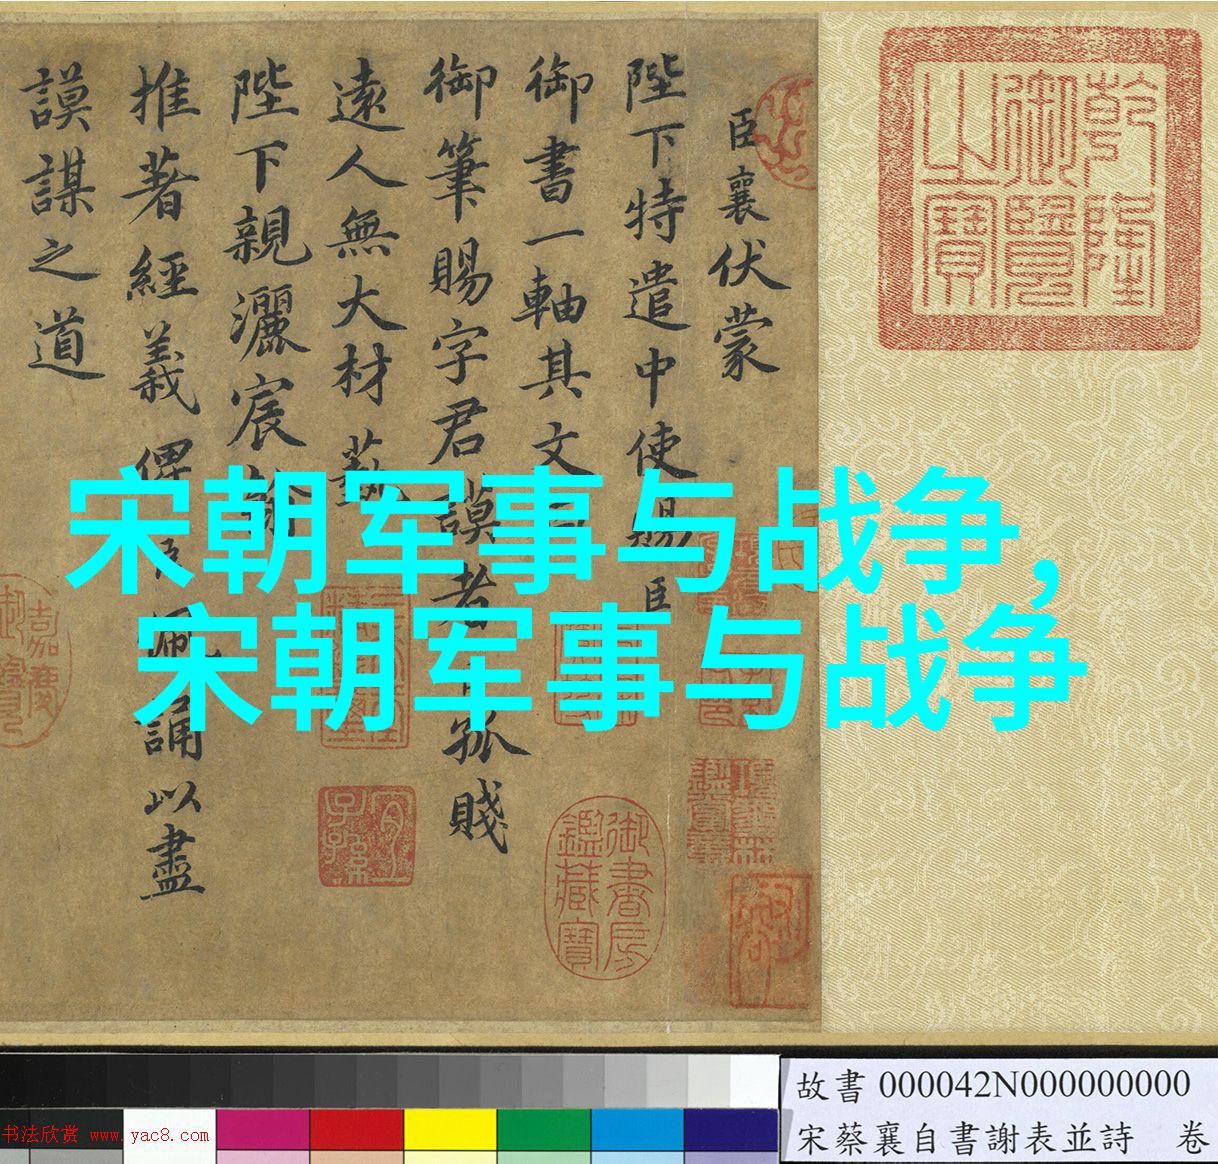 臣襄伏蒙
陛下特遣中使賜臣
御書一軸其文曰
御筆賜字君謨者臣孤賤
遠人無大材藝
陛下親灑宸翰
推著經義俾臣佩誦以盡
謨謀之道
乾隆
御覽
之寶
嘉慶
御覽
宜
子孫
御書房
鑑藏寶
宋朝军事与战争，
宋朝军事与战争
故書 000042N000000000
宋蔡襄自書謝表並詩 卷
书法欣赏 www.yac8.com